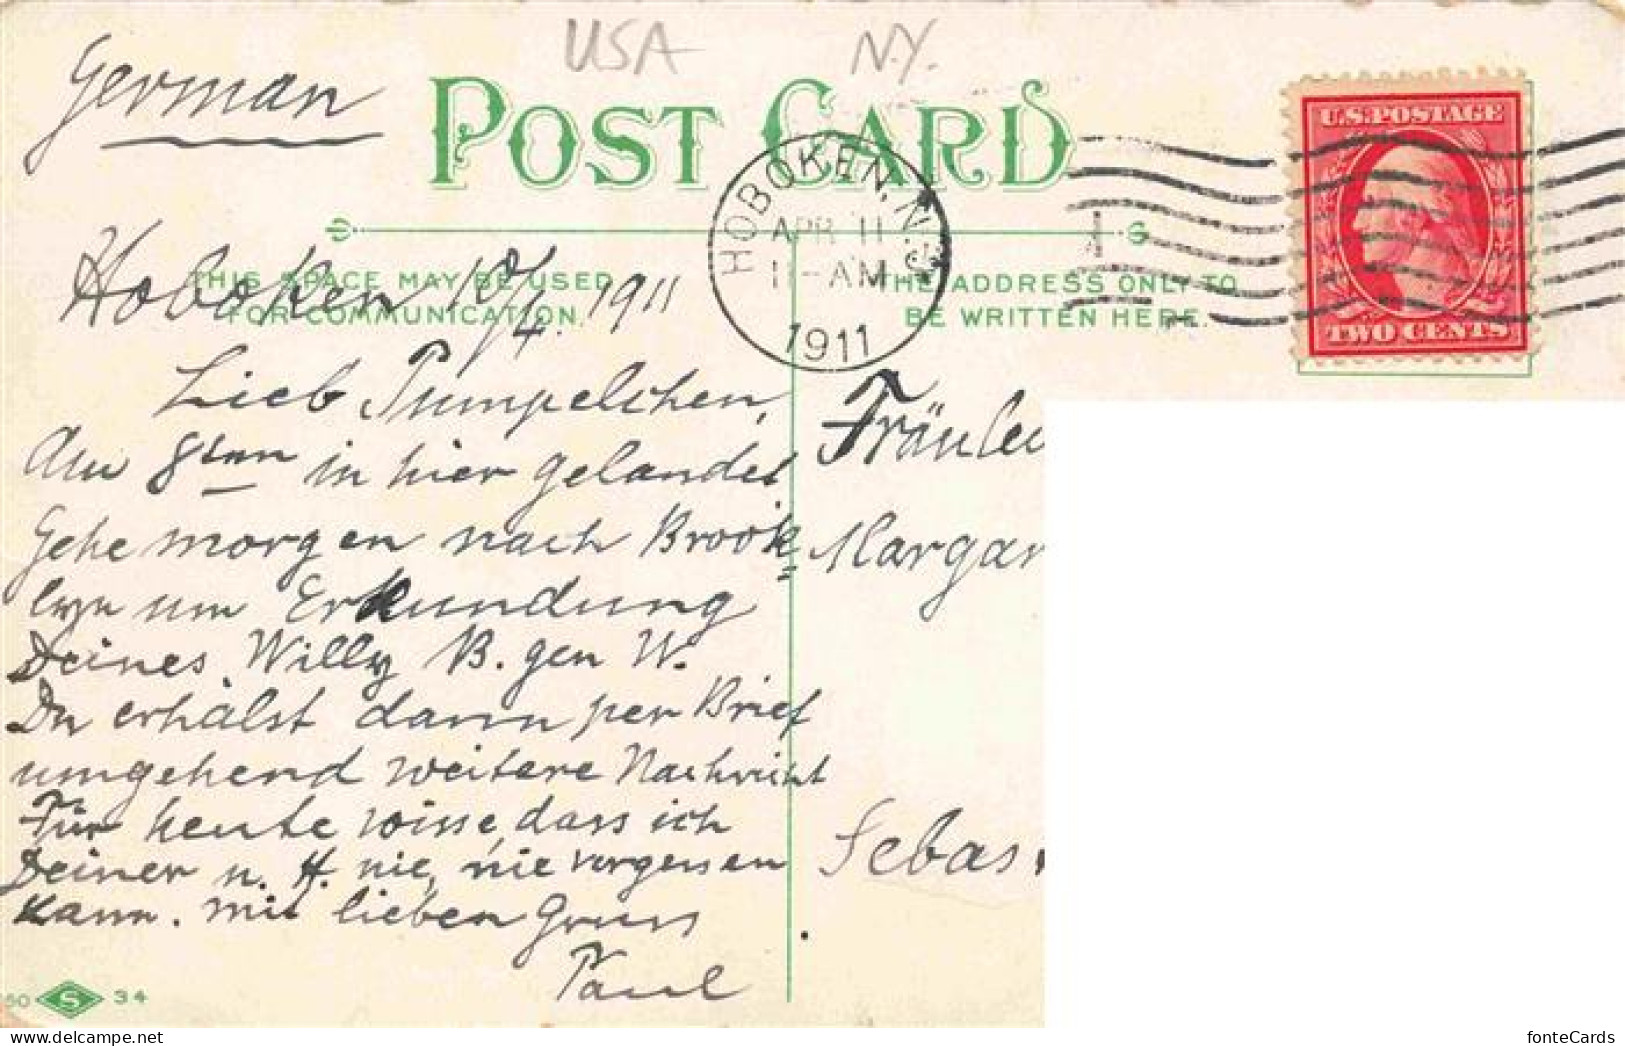 USA N.Y.
German
POST CARD
HOBOKEN, N.J.
APR 11
11-AM
1911
U.S. POSTAGE
TWO CENTS
THIS SPACE MAY BE USED
FOR COMMUNICATION.
THE ADDRESS ONLY TO
BE WRITTEN HERE.
Hoboken 10/4. 1911
Lieb Pumpelchen,
Am 8ten in hier gelandet
Gehe morgen nach Brook=
lyn um Erkundung
Deines Willy B. gen W.
Du erhälst dann per Brief
umgehend weitere Nachricht
Für heute wisse, dass ich
Deiner u. H. nie, nie vergessen
kann. mit lieben Gruss
Paul
Fräulei
Margar
Sebas
50 S 34
fonteCards